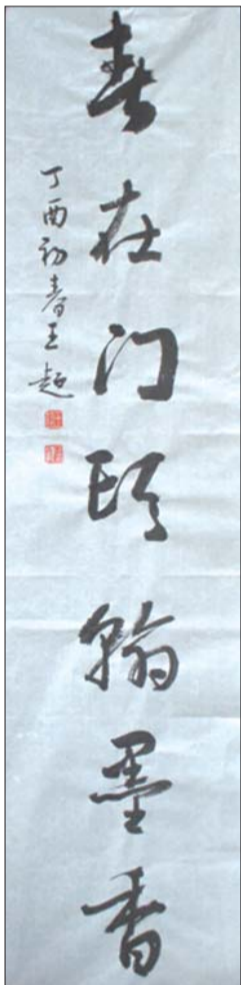 春在门頭翰墨香
丁酉初春王超